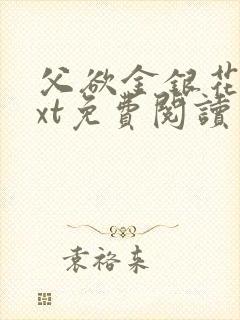 父欲金銀花
xt免費閱讀
袁裕来